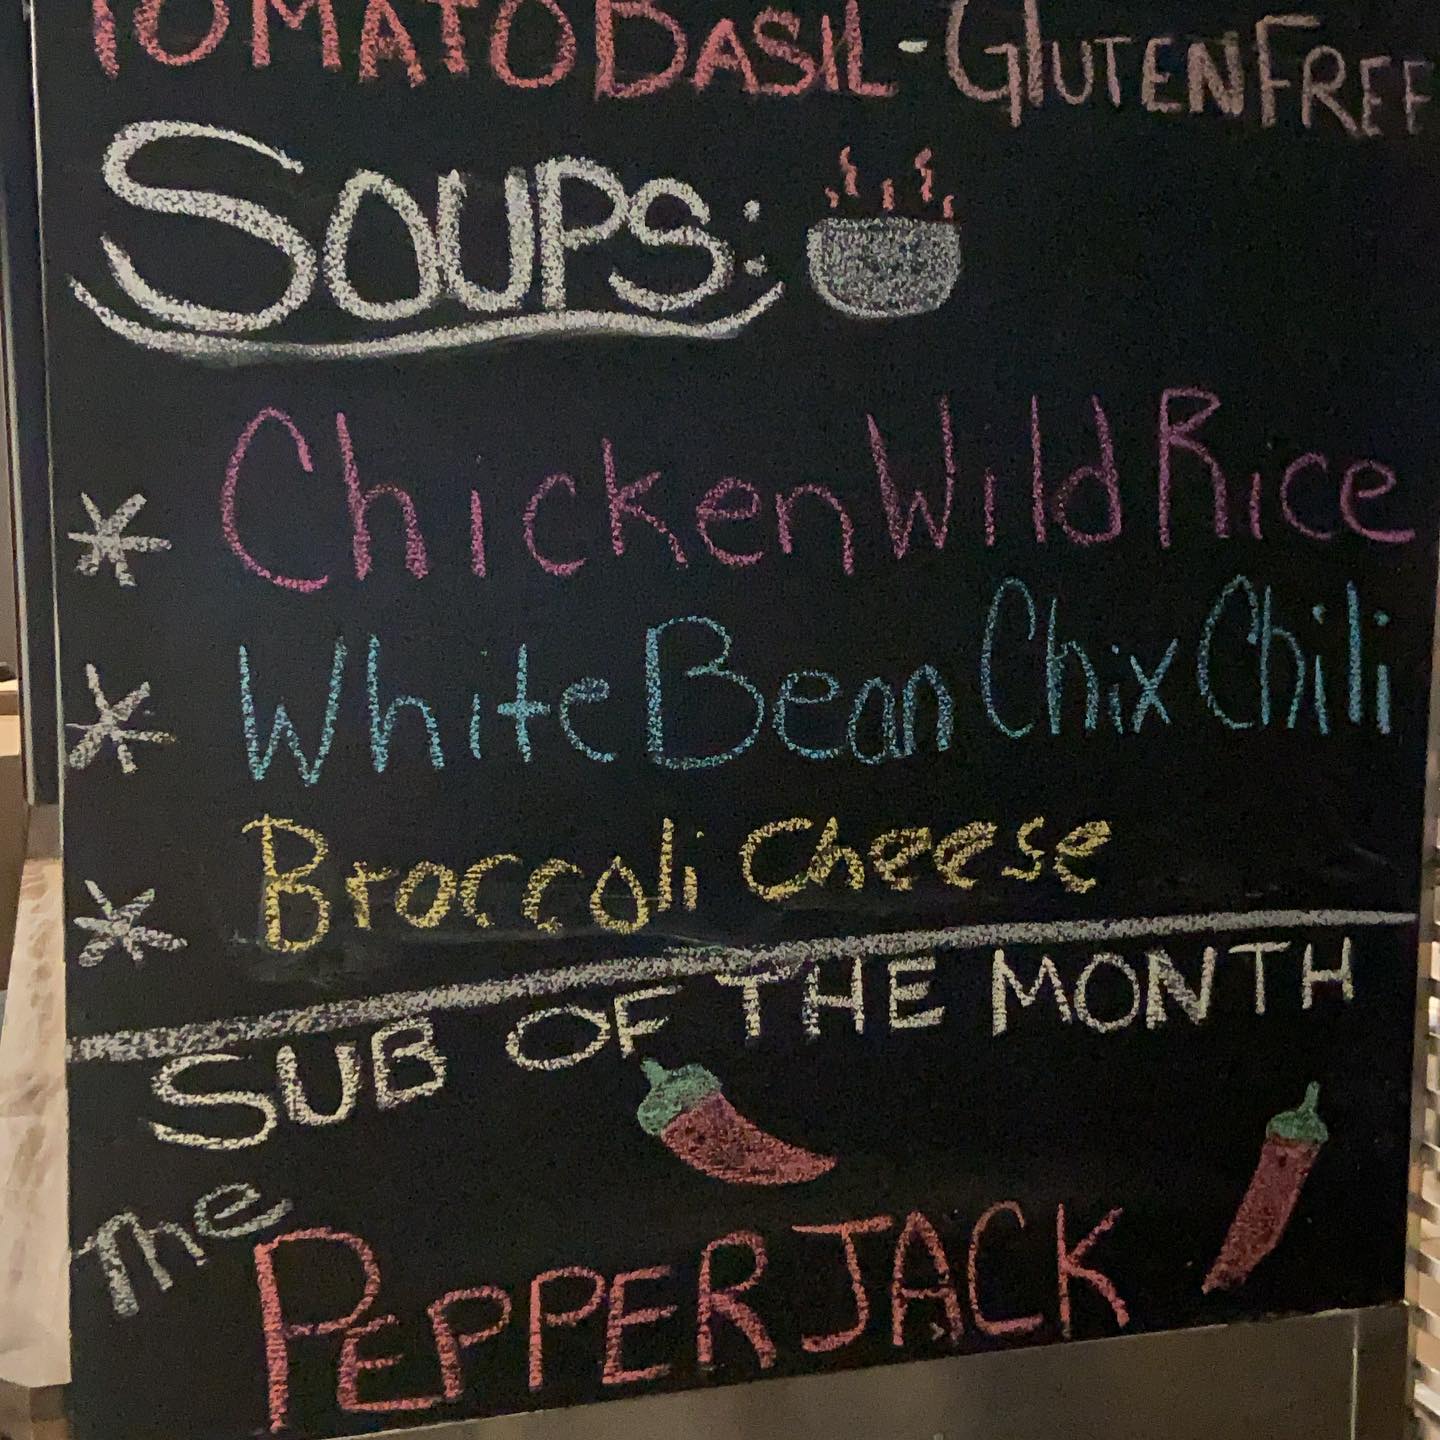 TOMATO BASIL - GLUTEN FREE
SOUPS:
* Chicken Wild Rice
* White Bean Chix Chili
* Broccoli Cheese
SUB OF THE MONTH
The PEPPER JACK